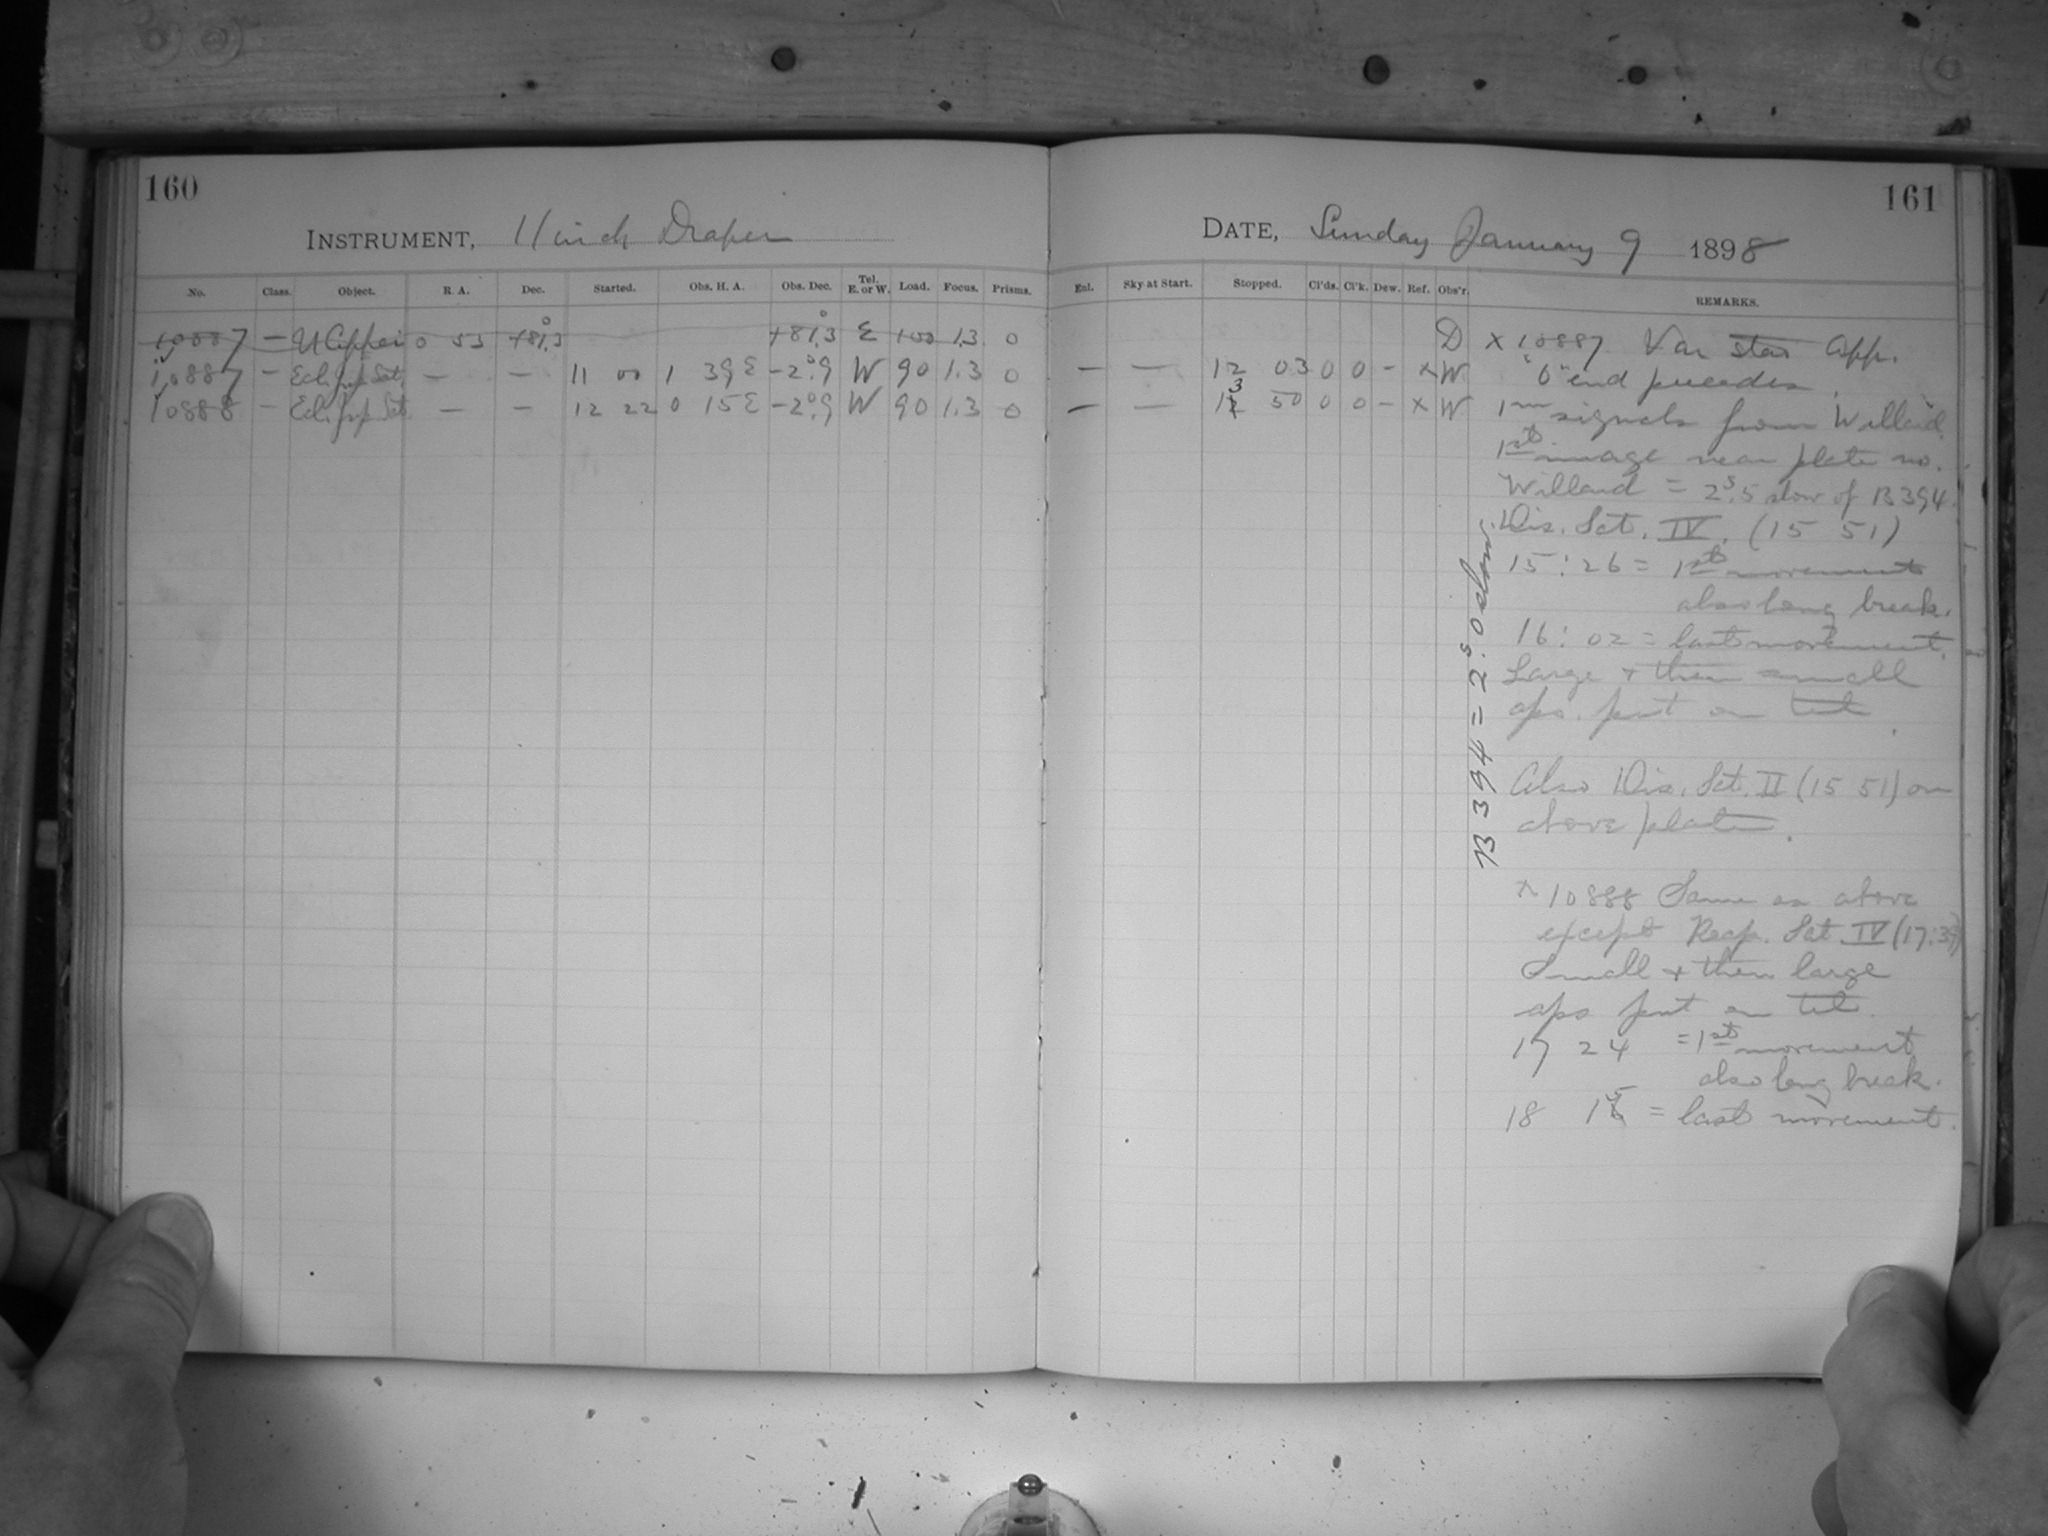 160
INSTRUMENT, 11 inch Draper
No. Class. Object. R. A. Dec. Started. Obs. H. A. Obs. Dec. Tel. E. or W. Load. Focus. Prisms.
10887 — U Cephei 0 53 +81°.3 +81°.3 E 100 1.3 0
10887 — Ecl. Jup. Sat. — — 11 00 1 39 E -2°.9 W 90 1.3 0
10888 — Ecl. Jup. Sat — — 12 22 0 15 E -2°.9 W 90 1.3 0
161
DATE, Sunday January 9 1898
Ext. Sky at Start. Stopped. Cl'ds. Cl'k. Dew. Ref. Obs'r. REMARKS.
D
— — 12 03 0 0 - x W
— — 13 50 0 0 - x W
x 10887 Var star app.
"b" end precedes.
1m signals from Willard.
1st image near plate no.
Willard = 2s.5 slow of B394.
Dis. Sat. IV. (15 51)
15 : 26 = 1st movement
also long break.
16 : 02 = last movement.
Large + then small
aps. put on tel.
Also Dis. Sat. II (15 51) on
above plate.
x 10888 Same as above
except Reap. Sat. IV (17:39)
Small + then large
aps put on tel.
17 24 = 1st movement
also long break.
18 15 = last movement.
B 394 = 2s.0 slow.